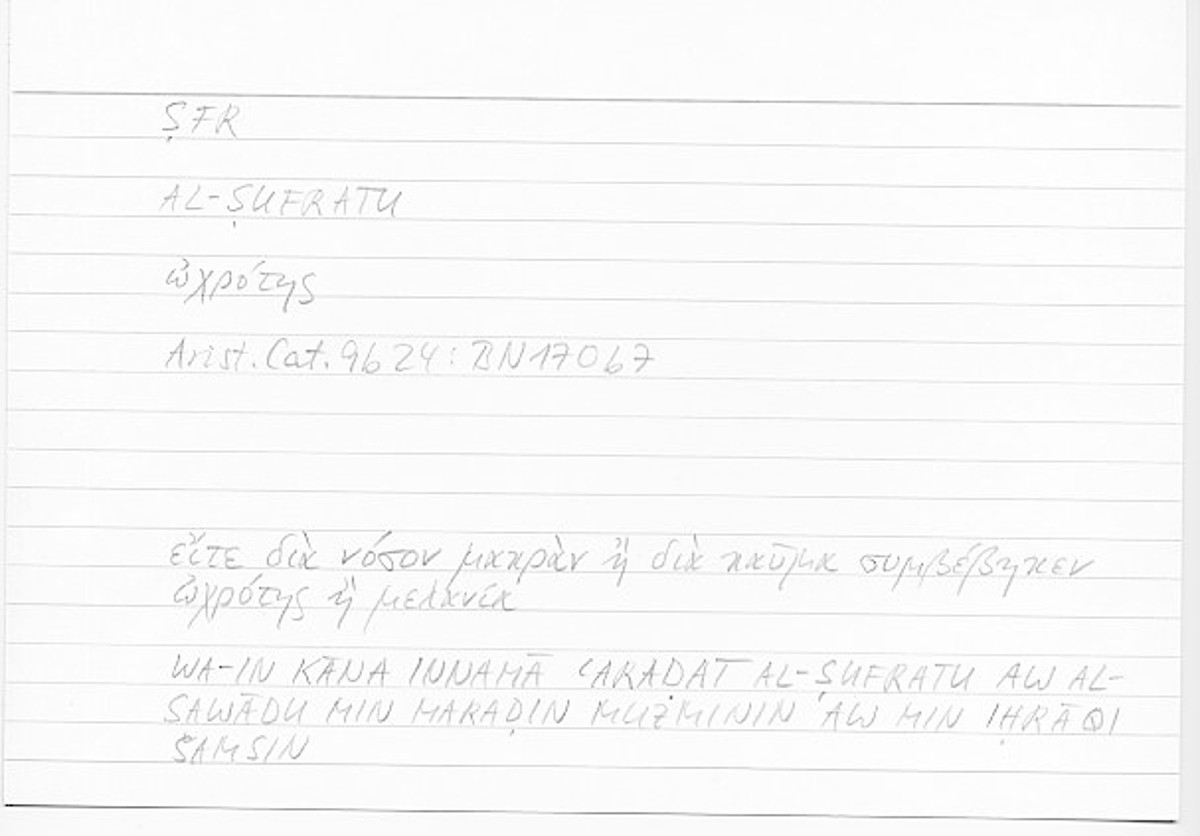 ṢFR
AL-ṢUFRATU
ὠχρότης
Arist. Cat. 9b 24 : BN 170b7
εἴτε διὰ νόσον μακρὰν ἢ διὰ καῦμα συμβέβηκεν
ὠχρότης ἢ μελανία
WA-IN KĀNA INNAMĀ ʿARAḌAT AL-ṢUFRATU AW AL-
SAWĀDU MIN MARAḌIN MUZMININ AW MIN IḤRĀQI
ŠAMSIN